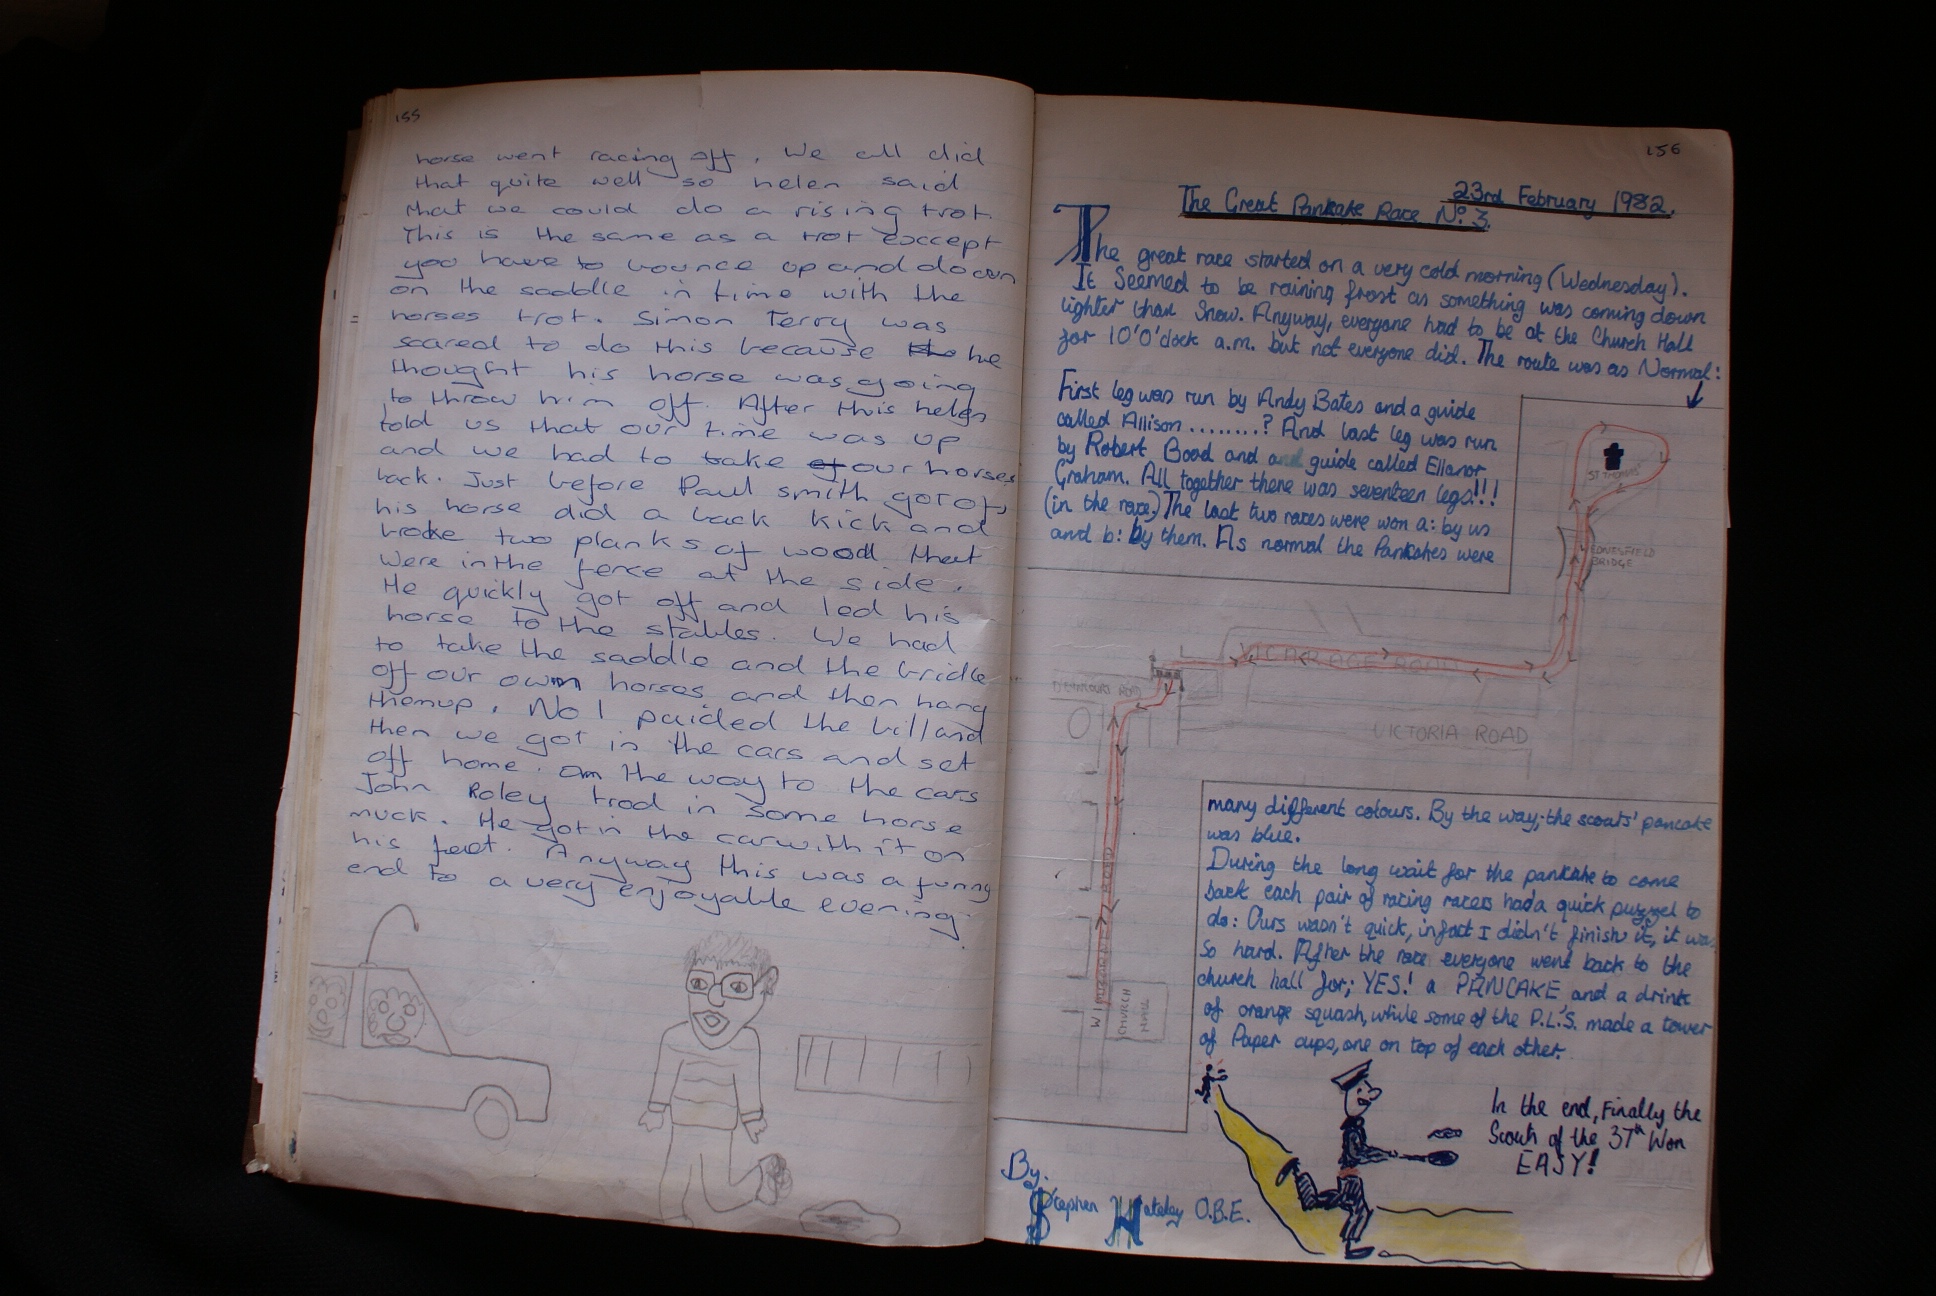 155
horse went racing off. We all did
that quite well so helen said
that we could do a rising trot.
This is the same as a trot exccept
you have to bounce up and down
on the saddle in time with the
horses trot. Simon Terry was
scared to do this because he
thought his horse was going
to throw him off. After this helen
told us that our time was up
and we had to take our horses
back. Just before Paul smith got of,
his horse did a back kick and
broke two planks of wood that
were in the fence at the side.
He quickly got off and led his
horse to the stables. We had
to take the saddle and the bridle
off our own horses and then hang
them up. No 1 paided the bill and
then we got in the cars and set
off home. On the way to the cars
John Roley trod in some horse
muck. He got in the car with it on
his feet. Anyway this was a funny
end to a very enjoyable evening.
156
23rd February 1982.
The Great Pankake Race No. 3.
The great race started on a very cold morning (Wednesday).
It seemed to be raining frost as something was coming down
lighter than Snow. Anyway, everyone had to be at the Church Hall
for 10'O'clock a.m. but not everyone did. The route was as Normal:
First leg was run by Andy Bates and a guide
called Allison ........? And last leg was run
by Robert Bood and guide called Ellanor
Graham. All together there was seventeen legs!!!
(in the race,) The last two races were won a: by us
and b: by them. As normal the Pankakes were
ST THOMAS'
BRIDGE
VICARAGE ROAD
VICTORIA ROAD
ROAD
CHURCH
HALL
many different colours. By the way; the scouts' pancake
was blue.
During the long wait for the pankake to come
back each pair of racing racers had a quick puzzel to
do: Ours wasn't quick, infact I didn't finish it, it was
so hard. After the race everyone went back to the
church hall for; YES! a PANCAKE and a drink
of orange squash, while some of the P.L.'S. made a tower
of Paper cups, one on top of each other.
In the end, Finally the
Scouts of the 37th Won
EASY!
By.
Stephen Hateley O.B.E.